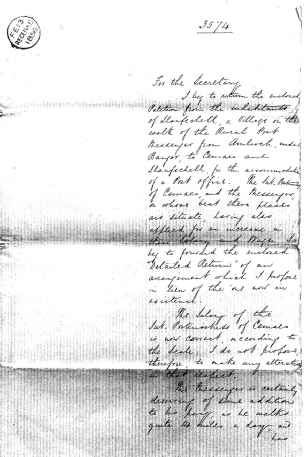 FE 13
1856
3574
For the Secretary
I beg to return the enclosed
Petition from the inhabitants
of Llanfechell, a Village on the
walk of the Rural Post
Messenger from Amlwch, under
Bangor, to Cemaes and
Llanfechell, for the accommodation
of a Post Office. The Sub. Postmrs
of Cemaes, and the Messenger
in whose beat these places
are situate, having also
applied for an increase in
beg to forward the enclosed
"Detailed Return" of any
arrangement which I propose
in lieu of the one now in
existence.
The Salary of the
Sub. Postmistress of Cemaes
is now correct, according to
the Scale. I do not propose,
therefore, to make any alteration
in that respect.
The Messenger is certainly
deserving of some addition
to his pay, as he walks
quite 14 miles a day, and
has